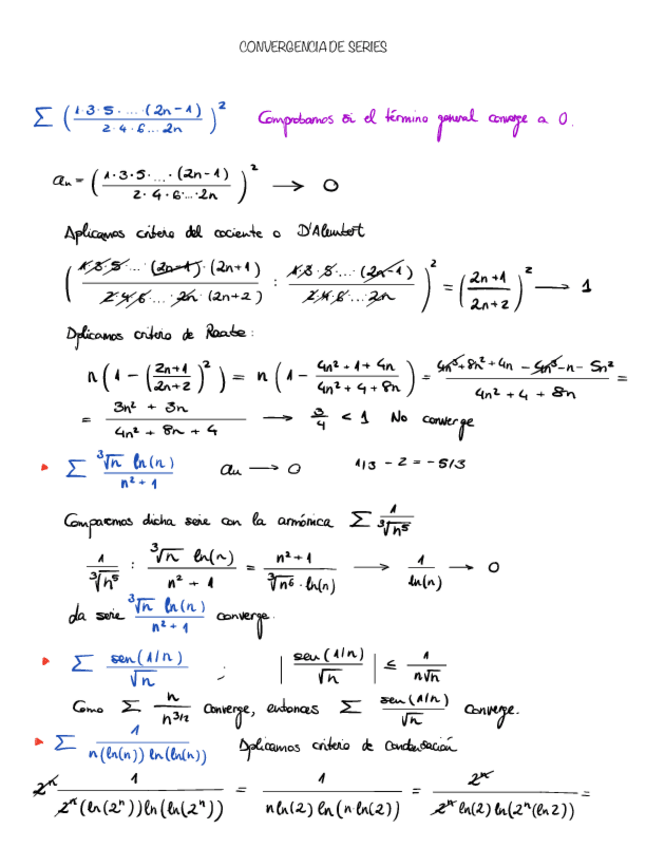 CONVERGENCIA DE SERIES
∑ (1·3·5·...·(2n-1) / 2·4·6...2n)² Comprobamos si el término general converge a 0.
an = (1·3·5·...·(2n-1) / 2·4·6·...·2n)² → 0
Aplicamos criterio del cociente o D'Alembert
(1·3·5·...(2n-1)·(2n+1) / 2·4·6·...2n·(2n+2) : 1·3·5·...(2n-1) / 2·4·6·...2n)² = (2n+1 / 2n+2)² → 1
Aplicamos criterio de Raabe:
n(1 - (2n+1 / 2n+2)²) = n(1 - 4n²+1+4n / 4n²+4+8n) = 4n³+8n²+4n-4n³-n-5n² / 4n²+4+8n =
= 3n²+3n / 4n²+8n+4 → 3/4 < 1 No converge
▸ ∑ ³√n ln(n) / n²+1 an → 0 1/3 - 2 = -5/3
Comparemos dicha serie con la armónica ∑ 1 / ³√n⁵
1 / ³√n⁵ : ³√n ln(n) / n²+1 = n²+1 / ³√n⁶·ln(n) → 1 / ln(n) → 0
La serie ³√n ln(n) / n²+1 converge.
▸ ∑ sen(1/n) / √n ; |sen(1/n) / √n| ≤ 1 / n√n
Como ∑ n / n^3/2 converge, entonces ∑ sen(1/n) / √n converge.
▸ ∑ 1 / n(ln(n))ln(ln(n)) Aplicamos criterio de condensación
2ⁿ 1 / 2ⁿ(ln(2ⁿ))ln(ln(2ⁿ)) = 1 / n ln(2) ln(n·ln(2)) = 2ⁿ / 2ⁿ ln(2) ln(2ⁿ(ln2)) =